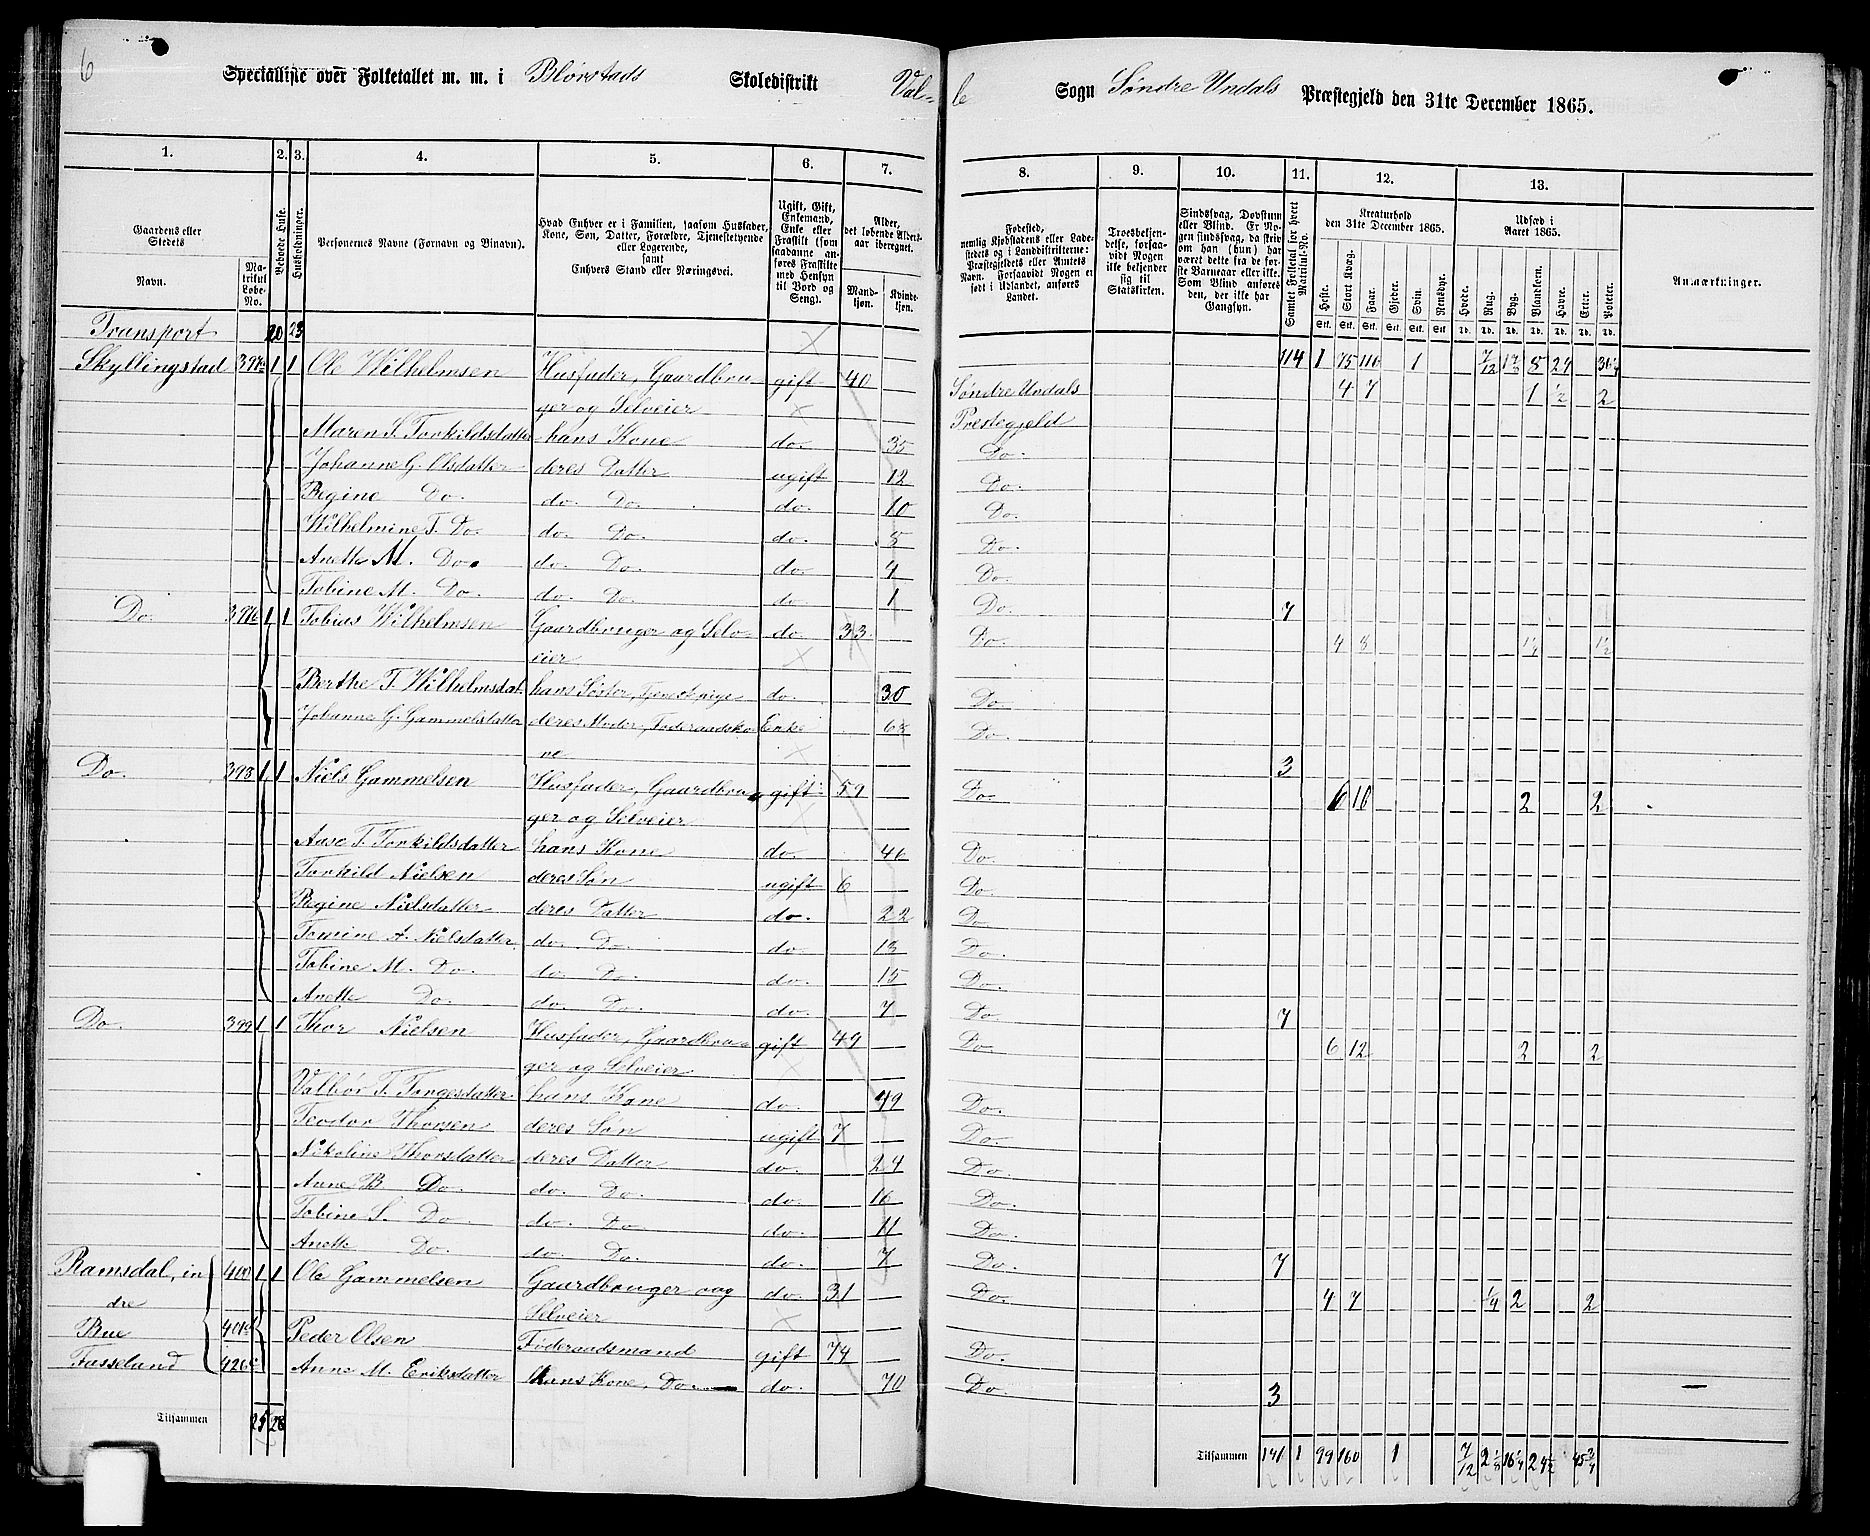 6
Specialliste over Folketallet m. m. i Blørstads Skoledistrikt Val- le Sogn Søndre Undals Præstegjeld den 31te December 1865.
1. 2. 3. 4. 5. 6. 7. 8. 9. 10. 11. 12. 13.
Gaardens eller Stedets
Navn. Matrikul Løbe-No.
Beboede Huse.
Husholdninger.
Personernes Navne (Fornavn og Binavn).
Hvad Enhver er i Familien, saasom Husfader, Kone, Søn, Datter, Forældre, Tjenestetyende eller Logerende, samt Enhvers Stand eller Næringsvei.
Ugift, Gift, Enkemand, Enke eller Fraskilt (som saadanne anføres Fraskilte med Hensyn til Bord og Seng).
Alder, det løbende Alders-aar iberegnet.
Mandkjøn. Kvindekjøn.
Fødested, nemlig Kjøbstadens eller Ladestedets og i Landdistrikterne: Præstegjeldets eller Amtets Navn. Forsaavidt Nogen er født i Udlandet, anføres Landet.
Troesbekjendelse, forsaavidt Nogen ikke bekjender sig til Statskirken.
Sindssvag, Døvstum eller Blind. Er Nogen sindssvag, da skriv om han (hun) har været dette fra de første Barneaar eller ikke. Som Blind anføres den, der ikke har Gangsyn.
Samlet Folketal for hvert Matrikul-No.
Kreaturhold den 31te December 1865.
Heste. Stort Kvæg. Faar. Gjeder. Svin. Rensdyr.
Udsæd i Aaret 1865.
Hvede. Rug. Byg. Blandkorn. Havre. Erter. Poteter.
Anmærkninger.
Transport 20 23 114 1 75 110 1 7/12
Skyllingstad 397a 1 1 Ole Wilhelmsen Husfader, Gaardbru- gift 40 Søndre Undals 4 7 1 1/2 2
ger og Selveier Prestegjeld
Maren S. Torkildsdatter hans Kone do. 35 Do.
Johanne G. Olsdatter deres Datter ugift 12 Do.
Regine Do. do. Do. do. 10 Do.
Wilhelmine T. Do. do. Do. do. 8 Do.
Anette M. Do. do. Do. do. 4 Do.
Tobine M. Do. do. Do. do. 1 Do. 7
Do. 397b 1 1 Tobias Wilhelmsen Gaardbruger og Selv- do. 33 Do. 4 8 1 1/2
eier
Berthe T. Wilhelmsdat. hans Søster, Tjenestpige do. 30 Do.
Johanne G. Gammelsdatter deres Moder, Føderaadsko- Enke 68 Do.
ne 3
Do. 398 1 1 Niels Gammelsen Husfader, Gaardbru- gift 59 Do. 6 10 2 2
ger og Selveier
Aase T. Torkildsdatter hans Kone do. 46 Do.
Torkild Nielsen deres Søn ugift 6 Do.
Regine Nielsdatter deres Datter do. 22 Do.
Tomine A. Nielsdatter. do. Do. do. 18 Do.
Tobine M. Do. do. Do. do. 15 Do.
Anette Do. do. Do. do. 7 Do. 7
Do. 399 1 1 Thor Nielsen Husfader, Gaardbru- gift 49 Do. 6 12 2 2
ger og Selveier
Valbør T. Tongesdatter hans Kone do. 49 Do.
Teodor Thorsen deres Søn ugift 7 Do.
Nikoline Thorsdatter deres Datter do. 24 Do.
Anne B. Do. do. Do. do. 16 Do.
Tobine S. Do. do. Do. do. 11 Do.
Anette Do. do. Do. do. 7 Do. 7
Ramsdal, in- 400 1 1 Ole Gammelsen Gaardbruger og do. 31 Do. 4 7 1/4 2 2
dre Selveier
Bue 401 Peder Olsen Føderaadsmand gift 74 Do.
Fasseland 426c Anne M. Eriksdatter hans Kone, Do. do. 70 Do. 3
Tilsammen 25 28 Tilsammen 141 1 99 160 1 7/12 2 1/8 16 1/4 24 1/2 45 3/4